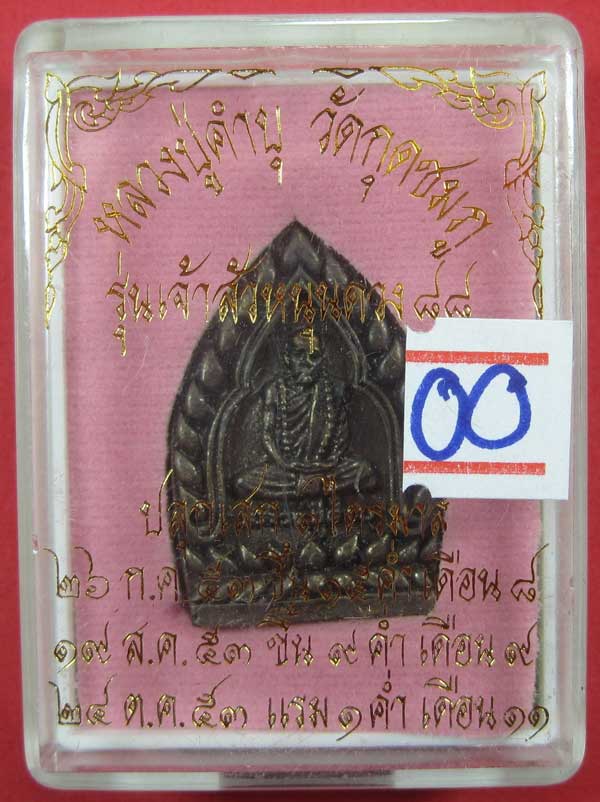 หลวงปู่คำบุ วัดกุดชมภู
รุ่นเจ้าสัวหนุนดวง ๘๘
00
ปลุกเสก ๑ ไตรมาส
๒๖ ก.ค. ๕๓ ขึ้น ๑๕ ค่ำ เดือน ๘
๑๙ ส.ค. ๕๓ ขึ้น ๙ ค่ำ เดือน ๙
๒๔ ต.ค. ๕๓ แรม ๑ ค่ำ เดือน ๑๑